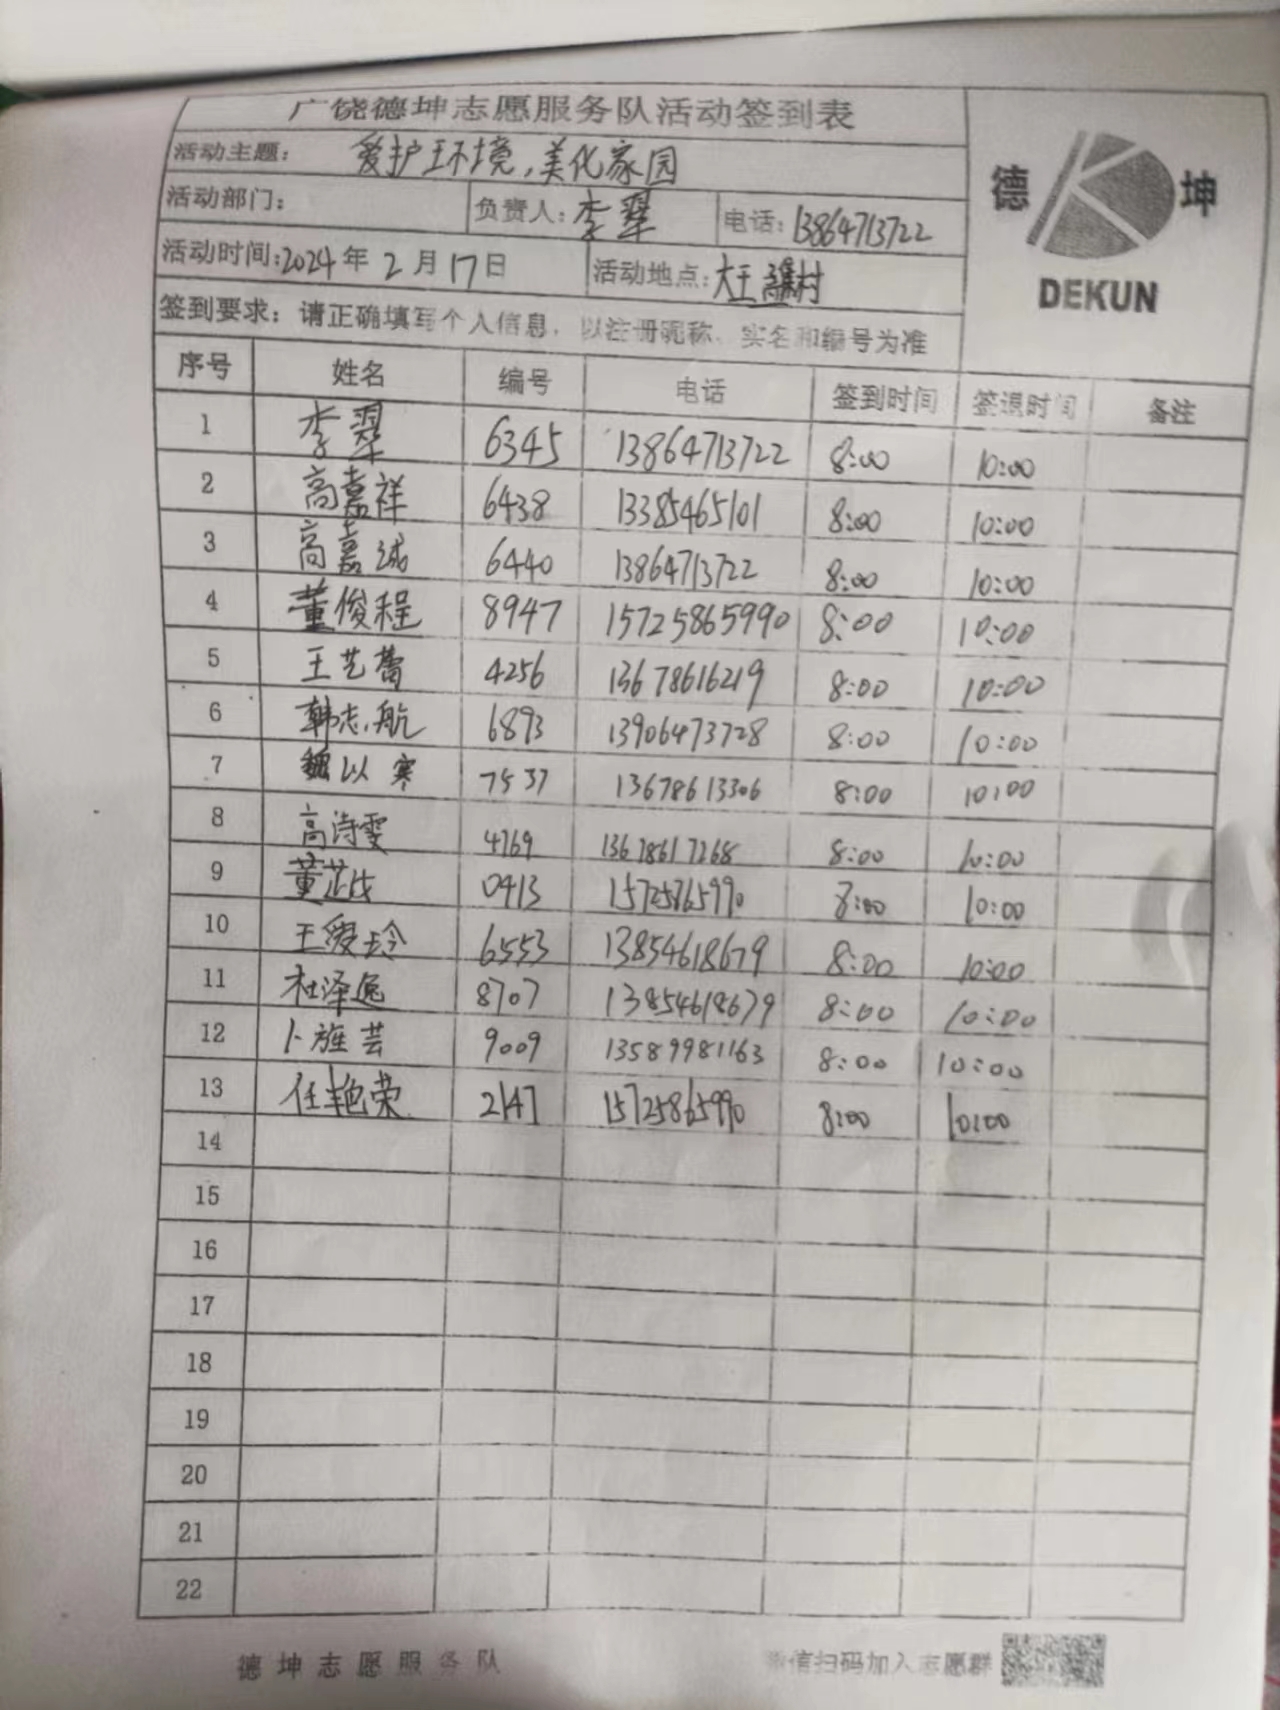 广饶德坤志愿服务队活动签到表
活动主题: 爱护环境,美化家园
德 坤
DEKUN
活动部门: 负责人: 李翠 电话: 13864713722
活动时间:2024年2月17日 活动地点: 大王 村
签到要求: 请正确填写个人信息, 以注册昵称、实名和编号为准
序号 姓名 编号 电话 签到时间 签退时间 备注
1 李翠 6345 13864713722 8:00 10:00
2 高嘉祥 6438 13385465101 8:00 10:00
3 高嘉诚 6440 13864713722 8:00 10:00
4 董俊程 8947 15725865990 8:00 10:00
5 王艺蕾 4256 13678616219 8:00 10:00
6 韩志航 6893 13906473728 8:00 10:00
7 魏以寒 7537 13678613306 8:00 10:00
8 高诗雯 4769 13678617268 8:00 10:00
9 董芷 0413 15725865990 8:00 10:00
10 王爱玲 6553 13854618679 8:00 10:00
11 杜泽逸 8707 13854618679 8:00 10:00
12 卜雅芸 9009 13589981163 8:00 10:00
13 任艳荣 2147 15725865990 8:00 10:00
14
15
16
17
18
19
20
21
22
德坤志愿服务队 微信扫码加入志愿群